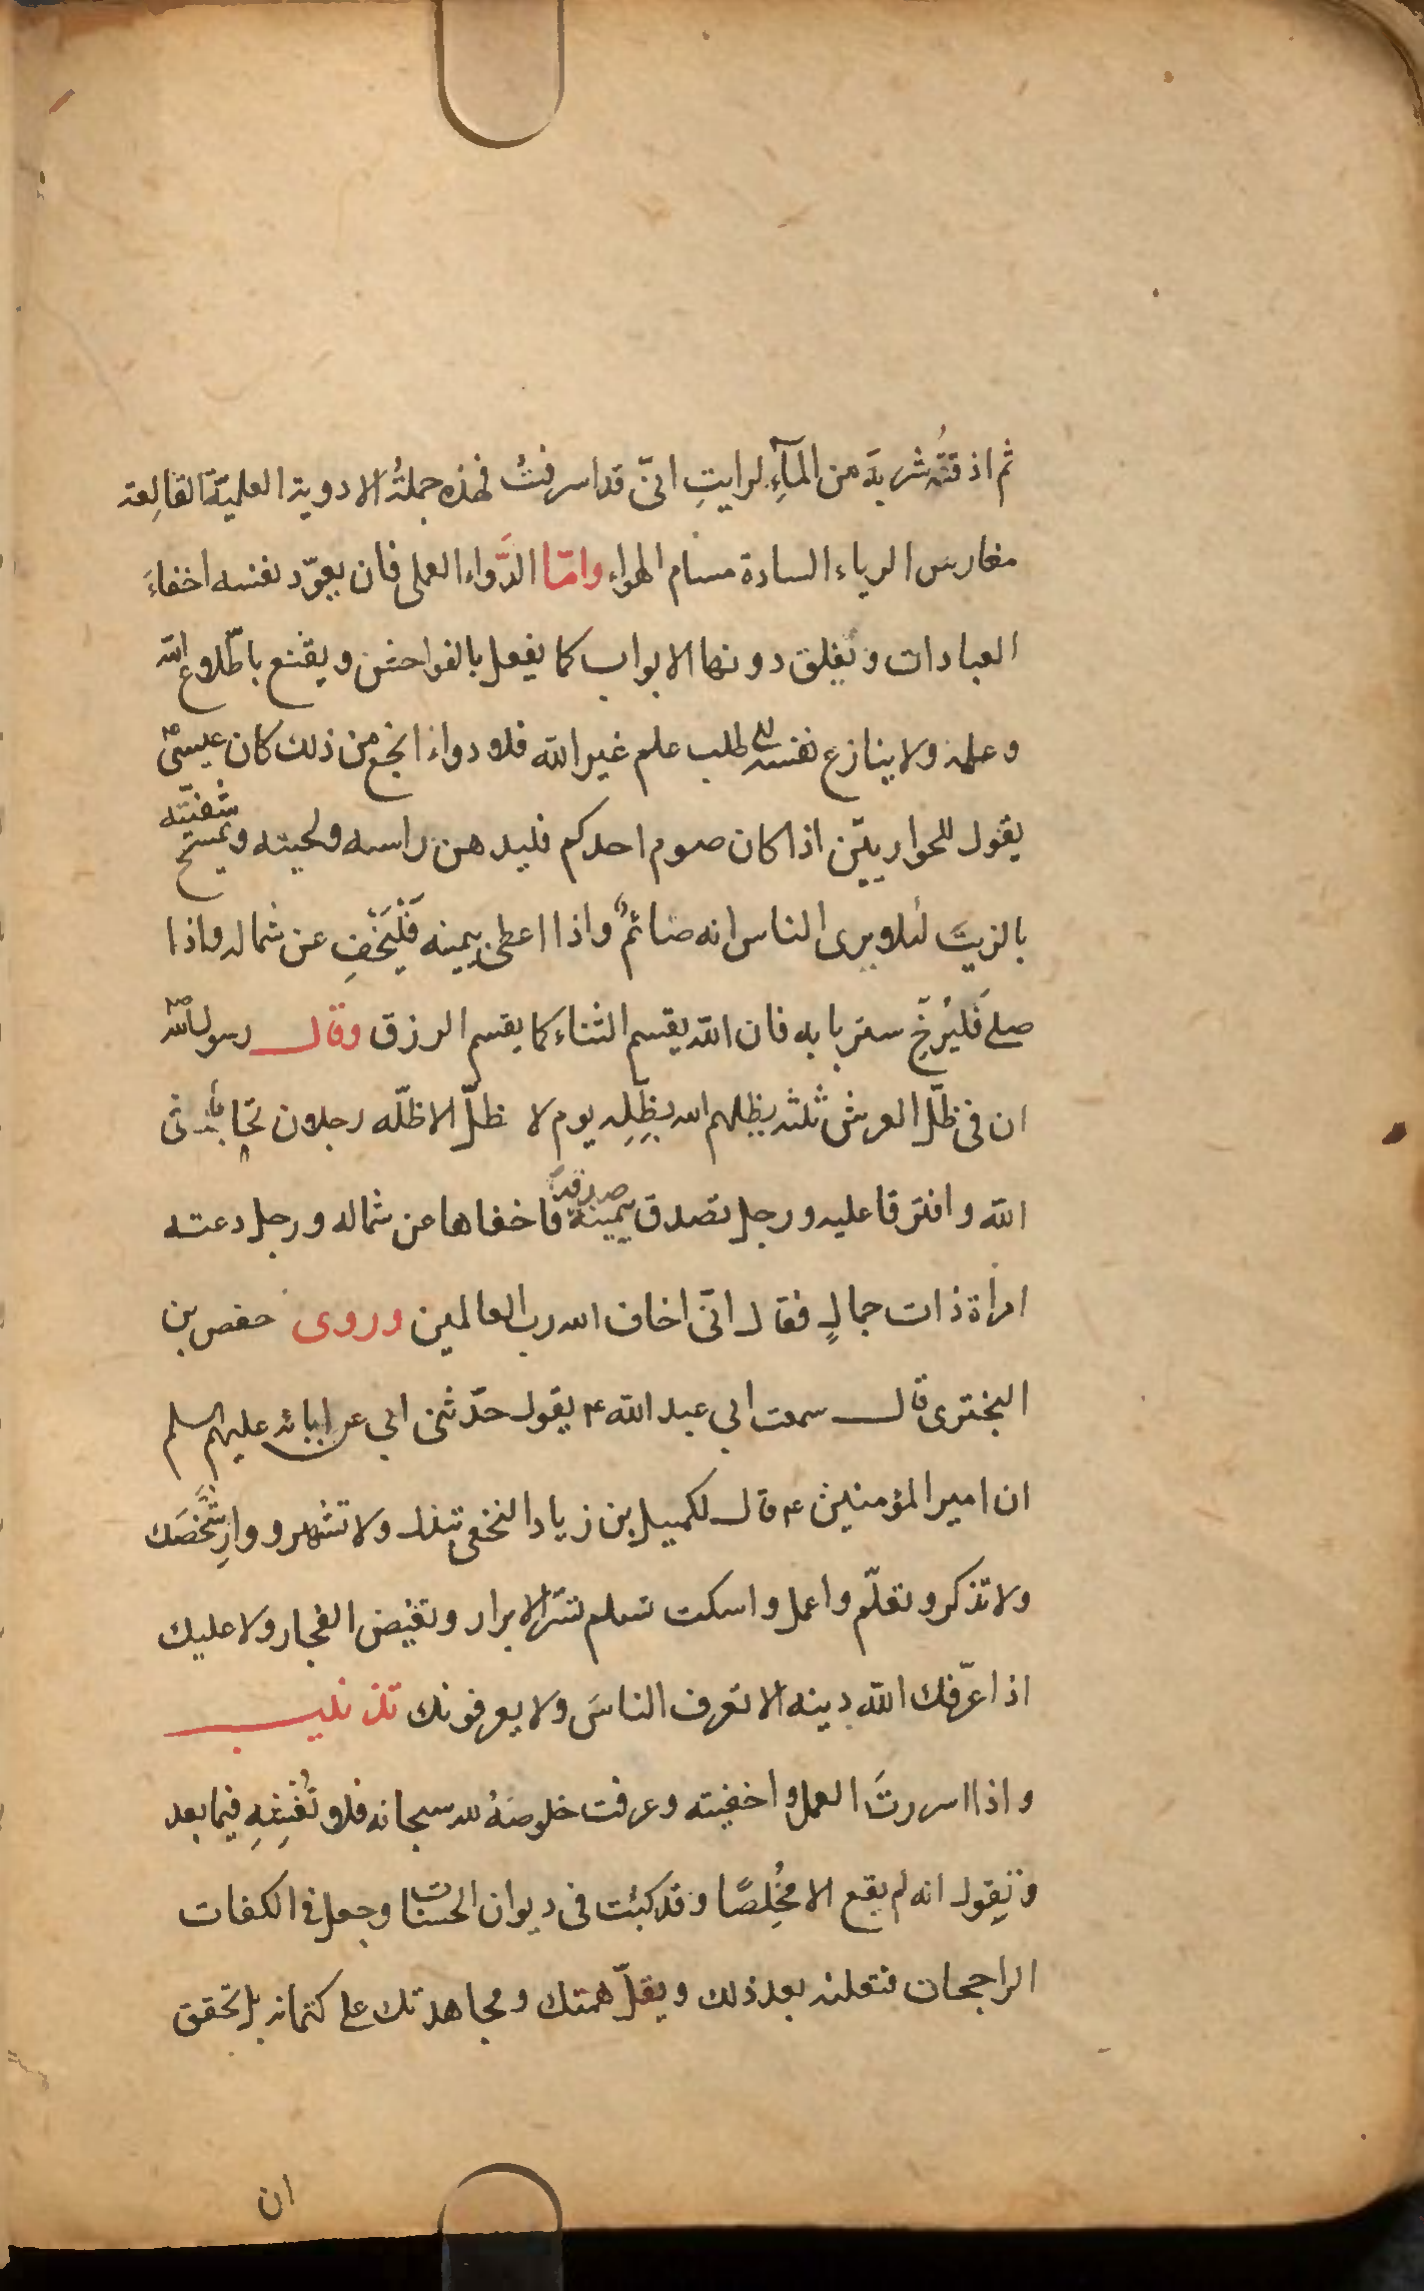 ثم اذقتُه شربة من المآءِ لرايتِ انىّ قد اسرفتُ فهذه جملةُ الادوية العلميّة القالِعة
مغارس الرياء السادة مسام الهواء وامّا الدَّواء العملى فان يعوّد نفسه اخفاءَ
العبادات وتغلق دونها الابواب كما يفعل بالفواحش ويقنع باطّلاع الله
وعلمه ولا ينازع نفسه الى طلب علم غير الله فلا دواء انجع من ذلك كان عيسىؑ
يقول للحواريّين اذا كان صوم احدكم فليدهن راسه ولحيته ويمسح شفتيه
بالزيت لئلا يرى الناس انه صائمٌ واذا اعطى بيمينه فَلْيَخْفِ عن شماله واذا
صلى فَليُرخِ ستر بابه فان الله يقسم الثناء كما يقسم الرزق وقال رسول اللهؐ
ان فى ظلّ العرش ثلثه يظلهم الله بظِلِه يوم لا ظلّ الا ظلّه رجلان تحابا فى
الله وافترقا عليه ورجل تصدق بيمينه صدقةً فاخفاها عن شماله ورجل دعته
امرأة ذات جمالٍ فقال انّى اخاف الله رب العالمين وروى حفص بن
البخترى قال سمعت ابى عبد الله ع يقول حدّثنى ابى عن ابائه عليهم السلم
ان امير المؤمنين ع قال لكميل بن زياد النخعى تبذل ولا تشهر ووارِ شَّخصَك
ولا تذكر وتعلّم واعمل واسكت تسلم تسّر الابرار وتغيض الفجار ولا عليك
اذا عرّفك الله دينه الا تعرف الناسَ ولا يعرفونك تذنيب
واذا اسررتَ العمل واخفيته وعرفت خلوصهُ لله سبحانه فلا تُفْشِهِ فيما بعد
وتقول انه لم يقع الا مخُلِصًا وقد كتبت فى ديوان الحسنات وجعل فى الكفات
الراجحات فتعلنه بعد ذلك ويقلّ همتك ومجاهدتك على كتمانه بل تحقق
ان